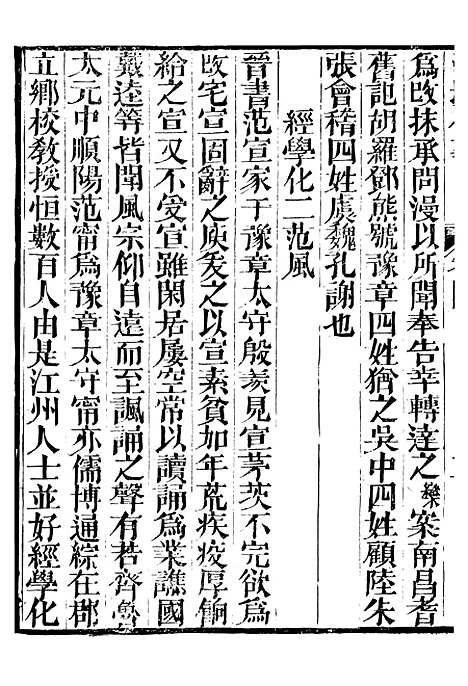 為改抹承問漫以所聞奉告幸轉達之欒案南昌耆
舊記胡羅鄧熊號豫章四姓猶之吳中四姓顧陸朱
張會稽四姓虞魏孔謝也
經學化二范風
晉書范宣家于豫章太守殷羨見宣茅茨不完欲為
改宅宣固辭之庾爰之以宣素貧加年荒疾疫厚餉
給之宣又不受宣雖閑居屢空常以讀誦為業譙國
戴逵等皆聞風宗仰自遠而至諷誦之聲有若齊魯
太元中順陽范甯為豫章太守甯亦儒博通綜在郡
立鄉校敎授恒數百人由是江州人士並好經學化